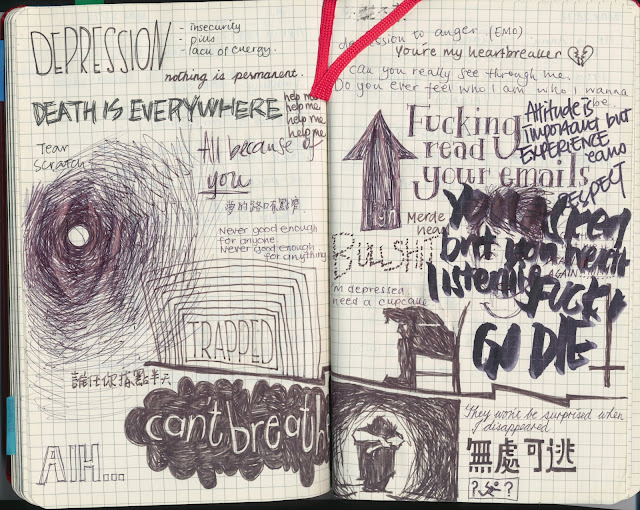 DEPRESSION
- insecurity
- pills
- lack of energy.
nothing is permanent.
DEATH IS EVERYWHERE
help me
help me
help me
help me
Tear
Scratch.
All because of
you
Never good enough
for anyone.
Never good enough
for anything
TRAPPED
can't breath
AIH...
depression to anger (EMO)
You're my heartbreaker
can you really see through me.
Do you ever feel who I am who I wanna
be
Fucking
read
your emails
Attitude is
Important but
EXPERIENCE
earns
RESPECT
Merde
BULLSHIT
I'm depressed
need a cupcake
but you
FUCK
GO DIE
They won't be surprised when
I disappeared
無處可逃
? ?